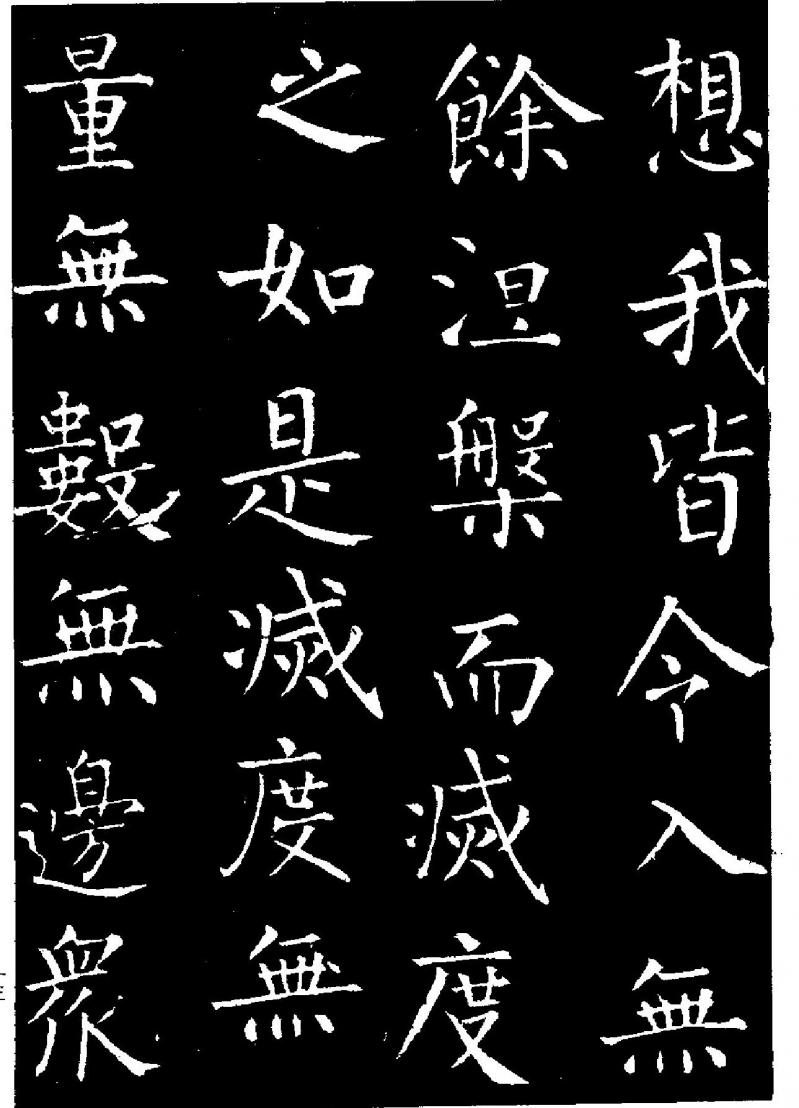 想我皆令入無
餘涅槃而滅度
之如是滅度無
量無數無邊眾